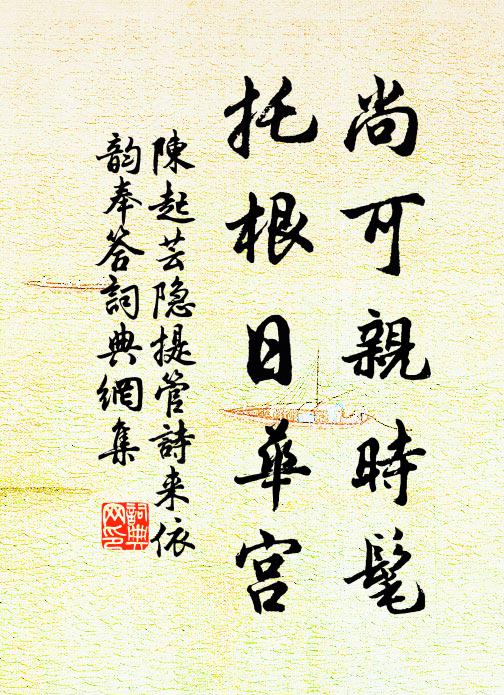 尚可親時髦
托根日華宮
陳起芸隐提管詩来依
韵奉答詞典網集
詞典
网印